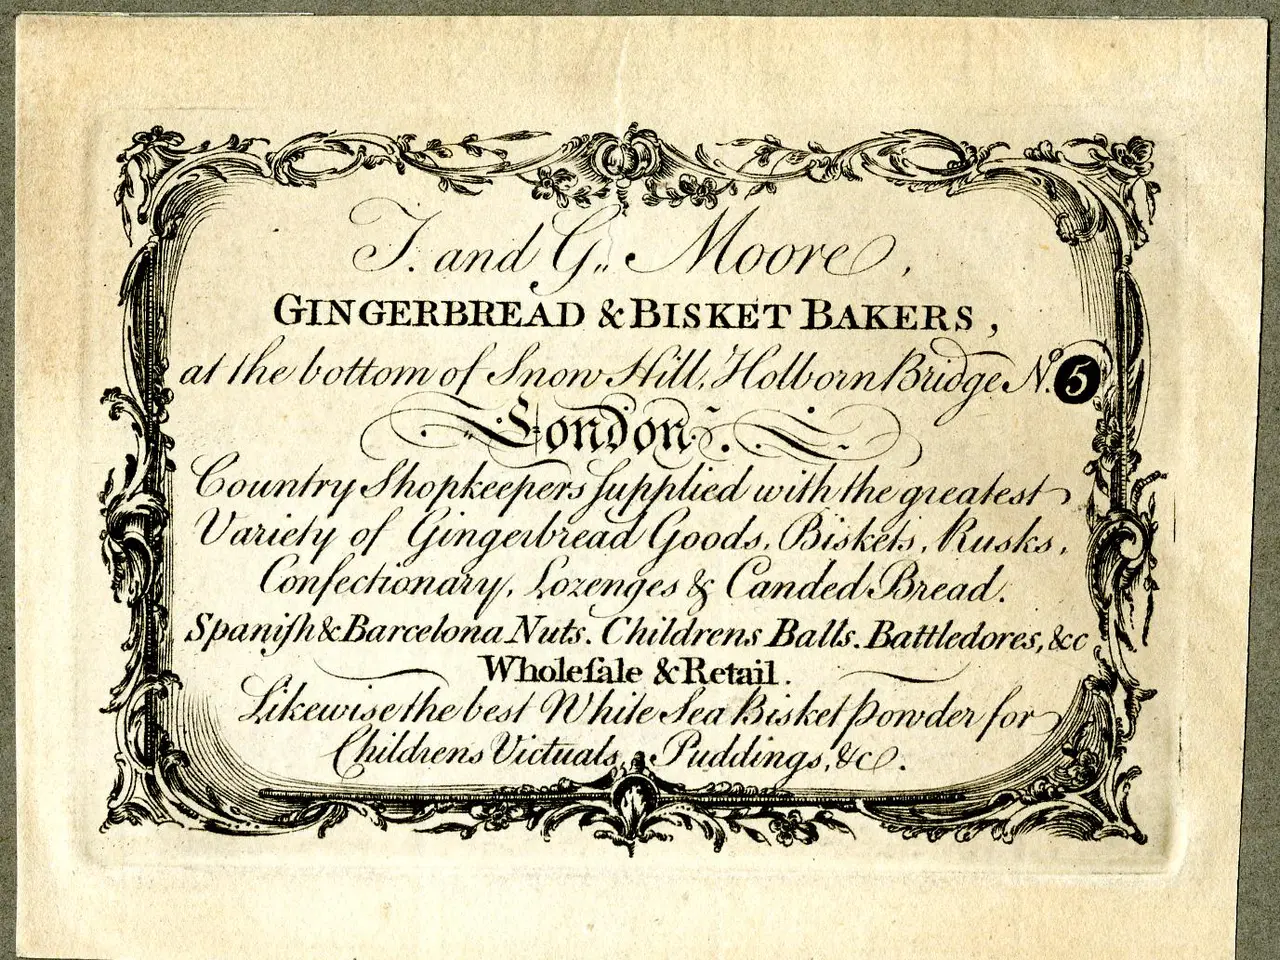 T. and G,, Moore,
GINGERBREAD & BISKET BAKERS,
at the bottom of Snow Hill, Holborn Bridge No. 5
London.
Country Shopkeepers supplied with the greatest
Variety of Gingerbread Goods, Biskets, Rusks,
Confectionary, Lozenges & Canded Bread.
Spaniſh & Barcelona Nuts. Childrens Balls. Battledores, &c
Wholeſale & Retail.
Likewise the best White Sea Bisket powder for
Childrens Victuals, Puddings, &c.